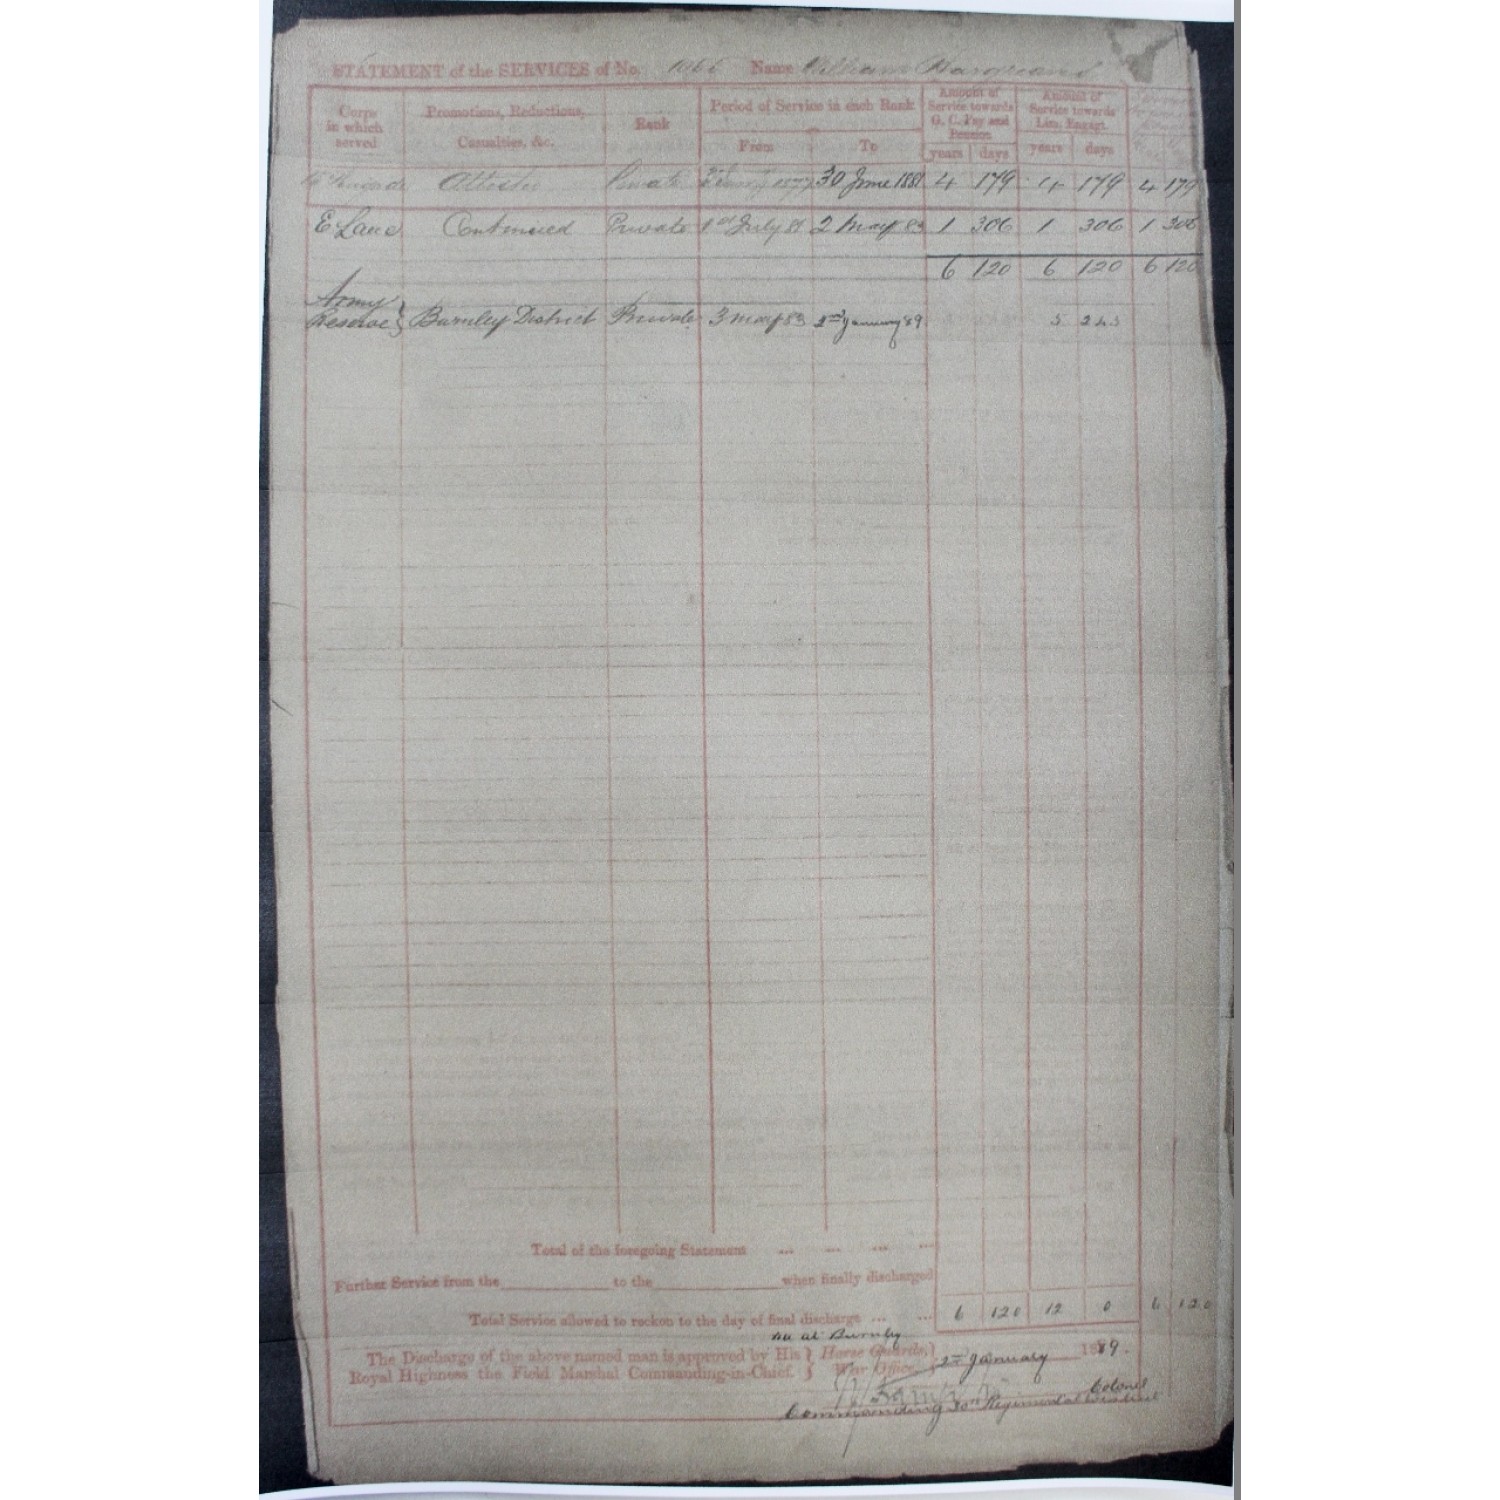 STATEMENT of the SERVICES of No. 1066 Name William
Corps in which served
Promotions, Reductions, Casualties, &c.
Rank
Period of Service in each Rank
From To
Amount of Service towards G. C. Pay and Pension
years days
Amount of Service towards Lim. Engagt.
years days
Attested Private 30 June 1881 4 179 4 179 4 179
E Lanc Continued Private 1st July 81 2 May 83 1 306 1 306 1 306
6 120 6 120 6 120
Army Reserve } Burnley District Private 3 May 83 2nd January 89 5 245
Total of the foregoing Statement ... ... ... ...
Further Service from the to the when finally discharged
Total Service allowed to reckon to the day of final discharge ... ... 6 120 12 0 6 120
at Burnley
The Discharge of the above named man is approved by His } Horse Guards, }
Royal Highness the Field Marshal Commanding-in-Chief. } War Office. } 2nd January 1889.
Colonel
Commanding 30th Regimental District